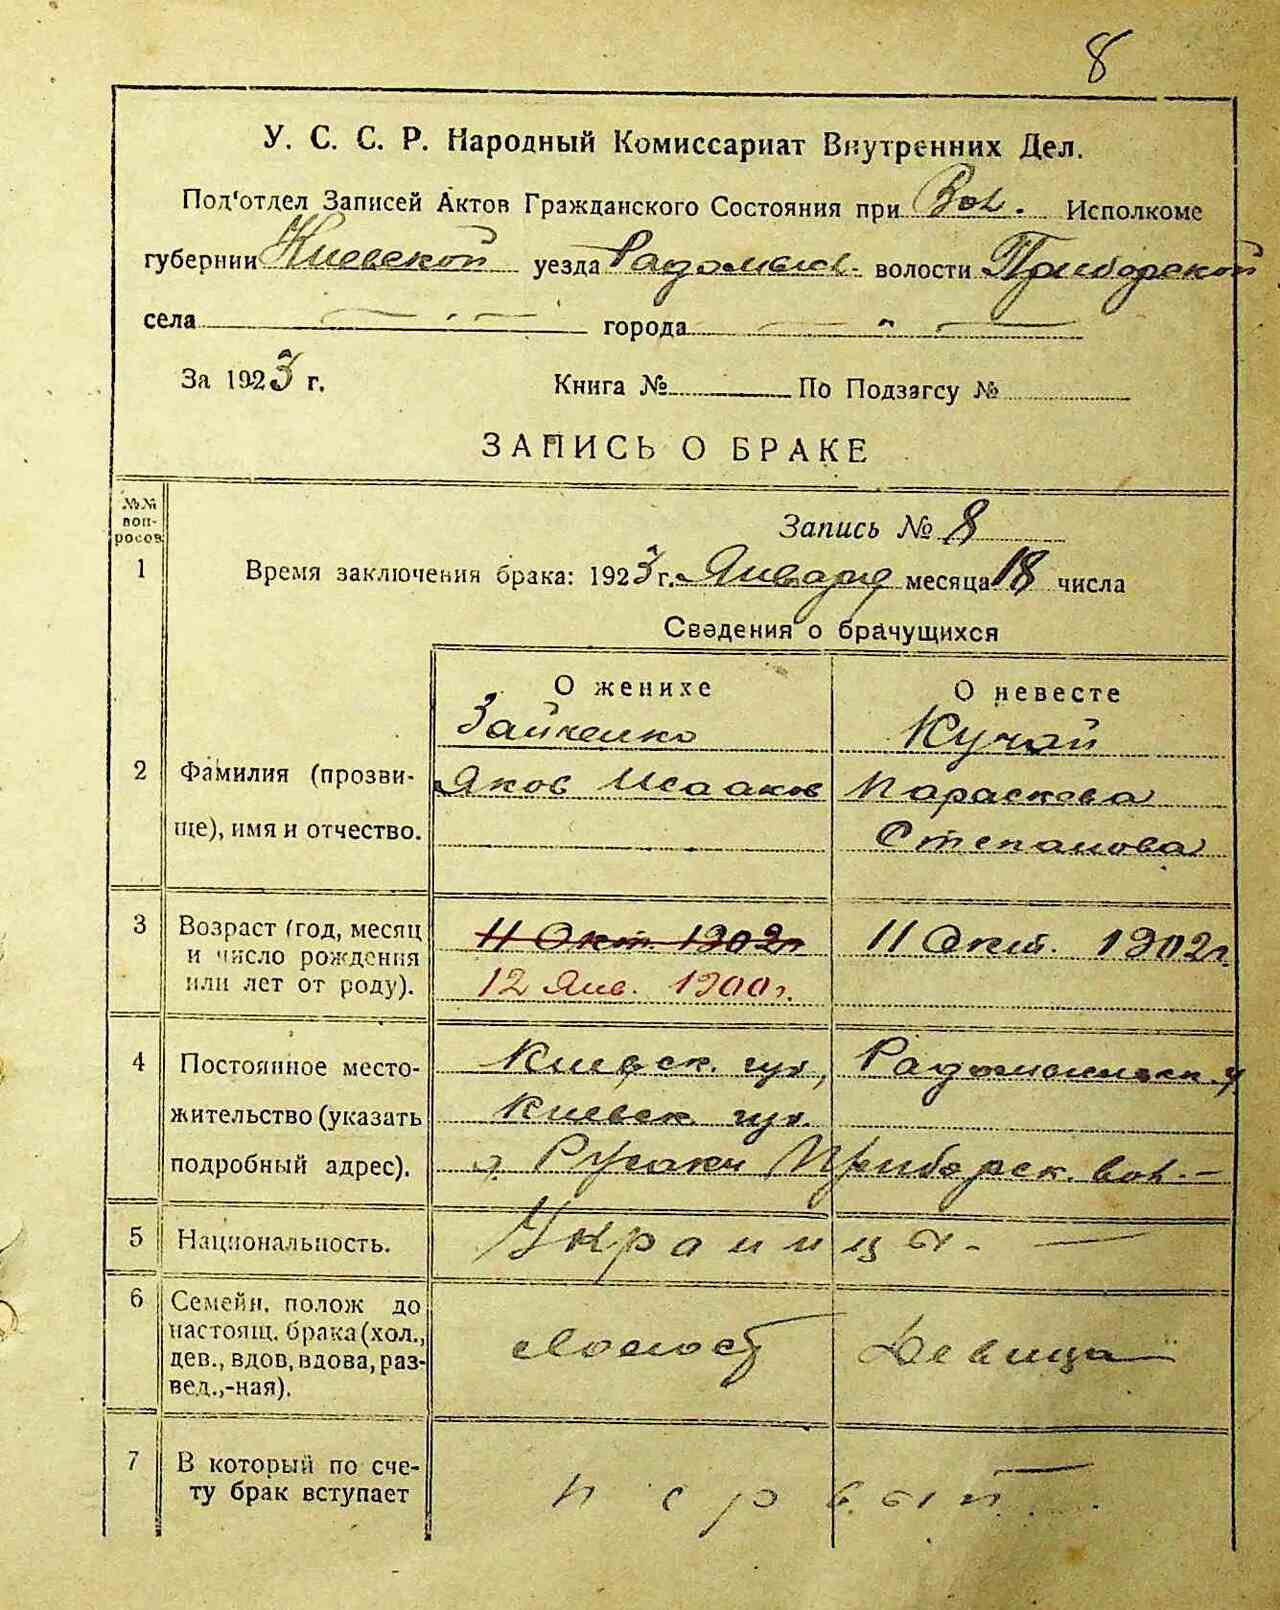 8
У. С. С. Р. Народный Комиссариат Внутренних Дел.
Под'отдел Записей Актов Гражданского Состояния при Вол. Исполкоме
губернии Киевской уезда Радомысл. волости Приборской
села города
За 1923 г. Книга № По Подзагсу №
ЗАПИСЬ О БРАКЕ
№№ воп-росов
Запись № 8
1 Время заключения брака: 1923 г. Января месяца 18 числа
Сведения о брачущихся
О женихе О невесте
Зайченко Кучай
2 Фамилия (прозви- Яков Исааков Параскева
ще), имя и отчество. Степанова
3 Возраст (год, месяц 11 Окт. 1902г. 11 Окт. 1902г.
и число рождения
или лет от роду). 12 Янв. 1900г.
4 Постоянное место- Киевск. губ, Радомысльск. у
жительство (указать Киевск. губ.
подробный адрес). Русаки Приборск. вол.
5 Национальность. Украинцы
6 Семейн. полож до
настоящ. брака (хол., Холост Девица
дев., вдов, вдова, раз-
вед.,-ная).
7 В который по сче- первый
ту брак вступает